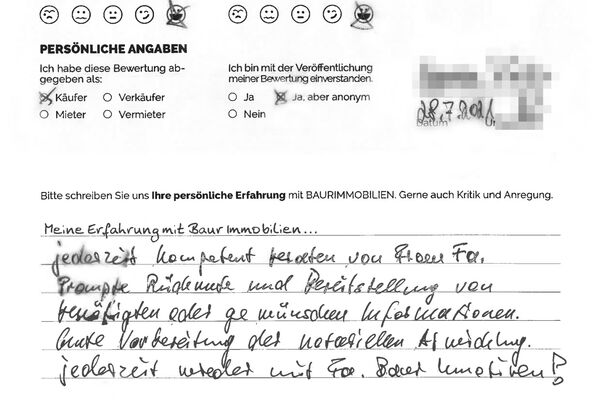 PERSÖNLICHE ANGABEN
Ich habe diese Bewertung ab-
gegeben als:
Käufer Verkäufer
Mieter Vermieter
Ich bin mit der Veröffentlichung
meiner Bewertung einverstanden.
Ja Ja, aber anonym
Nein
28.7.2021
Datum
Bitte schreiben Sie uns Ihre persönliche Erfahrung mit BAURIMMOBILIEN. Gerne auch Kritik und Anregung.
Meine Erfahrung mit Baur Immobilien...
jederzeit kompetent beraten von Ihrer Fa.
Prompte Rückrufe und Bereitstellung von
benötigten oder gewünschen Informationen.
Gute Vorbereitung der notariellen Abwicklung.
jederzeit wieder mit Fa. Baur Immobilien!